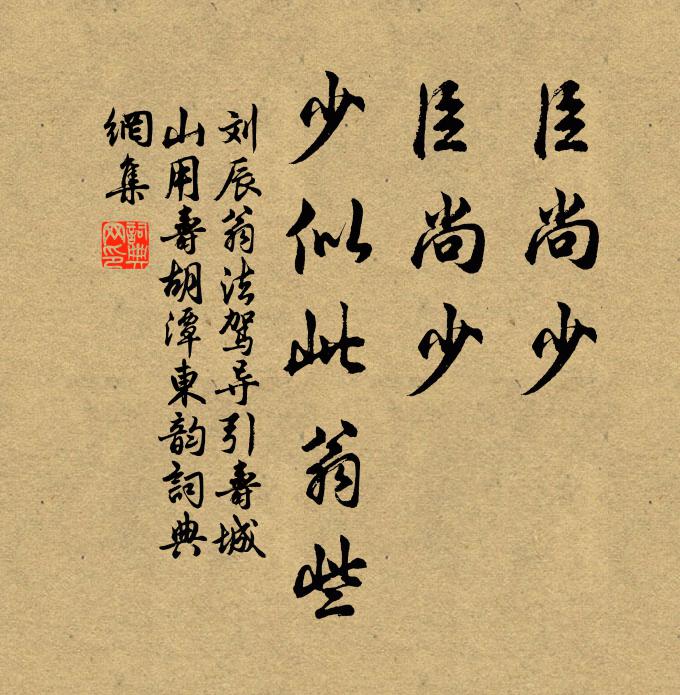 臣尚少
臣尚少
少似此翁些
刘辰翁法驾导引寿城
山用壽胡潭東韵詞典
網集
詞典網印